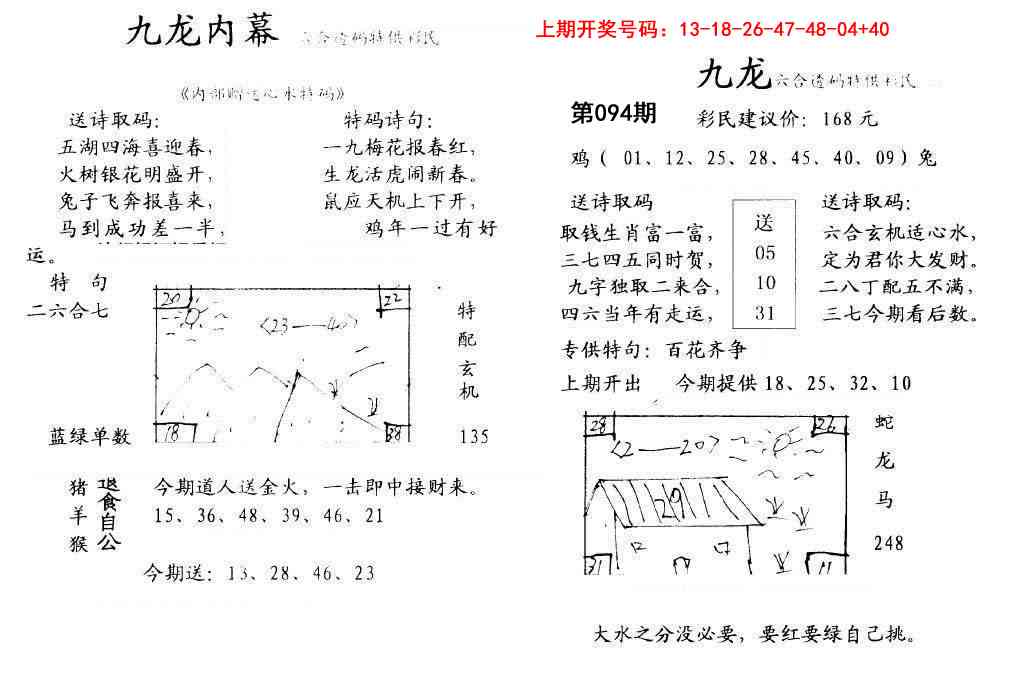 九龙内幕 六合透码特供彩民
《内部赠送心水特码》
送诗取码：
五湖四海喜迎春，
火树银花明盛开，
兔子飞奔报喜来，
马到成功差一半，
特码诗句：
一九梅花报春红，
生龙活虎闹新春。
鼠应天机上下开，
鸡年一过有好
运。
特 句
二六合七
蓝绿单数
20
22
<23——40>
18
38
特
配
玄
机
135
猪
羊
猴
自
公
今期道人送金火，一击即中接财来。
15、36、48、39、46、21
今期送：13、28、46、23
上期开奖号码：13-18-26-47-48-04+40
九龙 六合透码特供彩民
第094期
彩民建议价：168元
鸡（ 01、12、25、28、45、40、09）兔
送诗取码
取钱生肖富一富，
三七四五同时贺，
九字独取二来合，
四六当年有走运，
送
05
10
31
送诗取码：
六合玄机适心水，
定为君你大发财。
二八丁配五不满，
三七今期看后数。
专供特句：百花齐争
上期开出 今期提供18、25、32、10
28
<2——20>
29
31
11
蛇
龙
马
248
大水之分没必要，要红要绿自己挑。